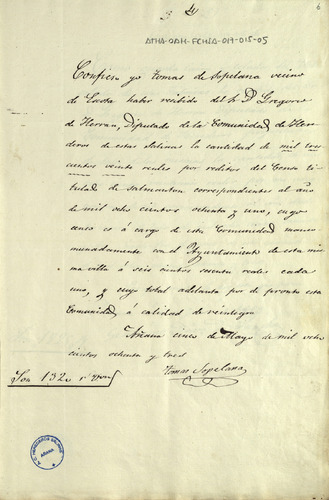 3 4
6
ATHA-DAH-FCHSA-017-015-05
Confieso yo Tomas de Sopelana vecino
de haber recibido del Sr. D. Gregorio
de Herran, Diputado de la Comunidad de Here
deros de estas Salinas la cantidad de mil tres
cientos veinte reales por reditos del Censo ti
tulado de Salmanton correspondientes al año
de mil ocho cientos ochenta y uno, cuyo
censo es á cargo de esta Comunidad manco
munadamente con el Ayuntamiento de esta mis
ma villa á seis cientos sesenta reales cada
uno, y cuyo total adelanta por de pronto esta
Comunidad á calidad de reintegro
Añana cinco de Mayo de mil ocho
cientos ochenta y tres
Tomas Sopelana
Son 1320 rs. von
AÑANA